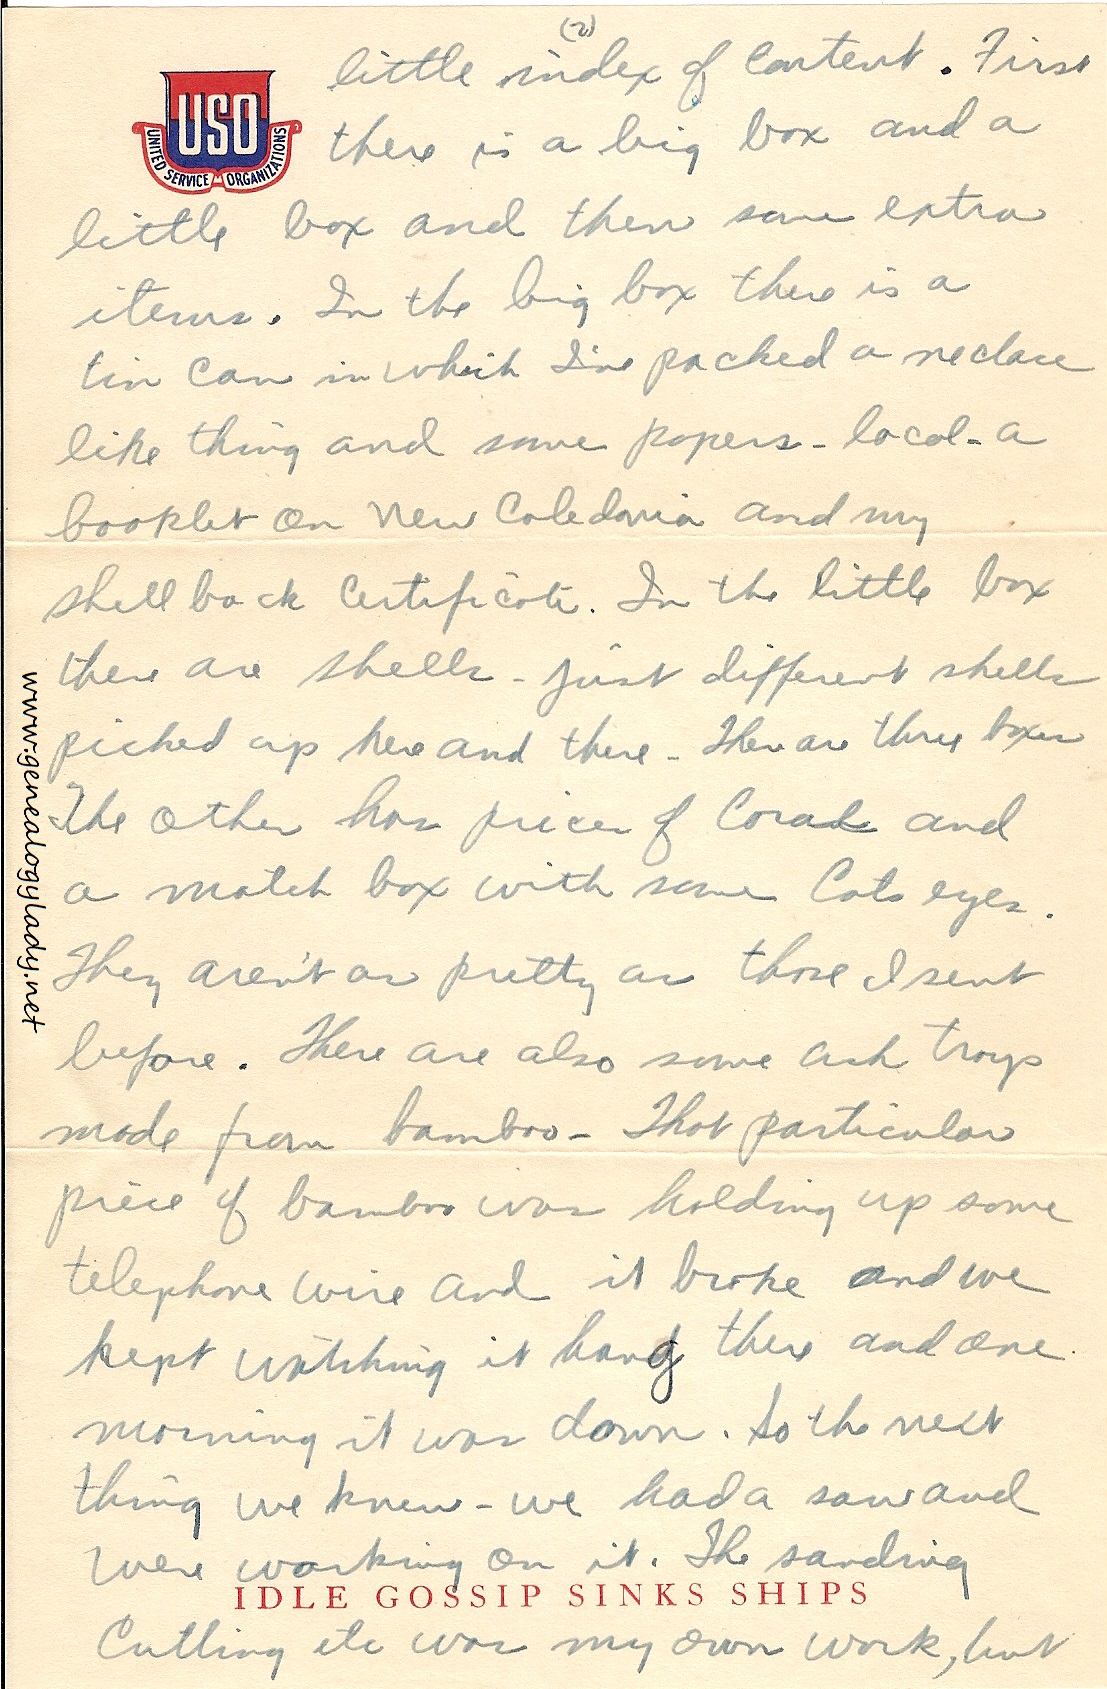 (2)
little index of content. First
USO
UNITED SERVICE ORGANIZATIONS
there is a big box and a
little box and then some extra
items. In the big box there is a
tin can in which I've packed a neclace
like thing and some papers - local - a
booklet on New Caledonia and my
shellback certificate. In the little box
there are shells - just different shells
picked up here and there - There are three boxes
The other has pieces of Coral and
a match box with some Cats eyes.
They aren't as pretty as those I sent
before. There are also some ash trays
made from bamboo - That particular
piece of bamboo was holding up some
telephone wire and it broke and we
kept watching it hang there and one
morning it was down. So the next
thing we knew - we had a saw and
were working on it. The sanding
IDLE GOSSIP SINKS SHIPS
Cutting etc was my own work, but
www.genealogylady.net